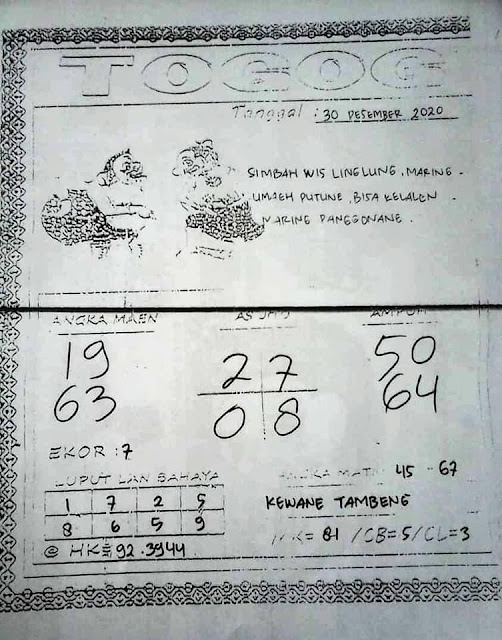 TOGOG
Tanggal : 30 DESEMBER 2020
SIMBAH WIS LINGLUNG, MARING
UMAEH PUTUNE, BISA KELALEN
MARING PANGGONANE.
ANGKA MAEN
19
63
27
08
AMPUH
50
64
EKOR : 7
LUPUT LAN BAHAYA
1 7 2 5
8 6 5 9
@ HK= 92.3944
ANGKA MATI 45 - 67
KEWANE TAMBENG
KK= 81 / CB=5 / CL=3